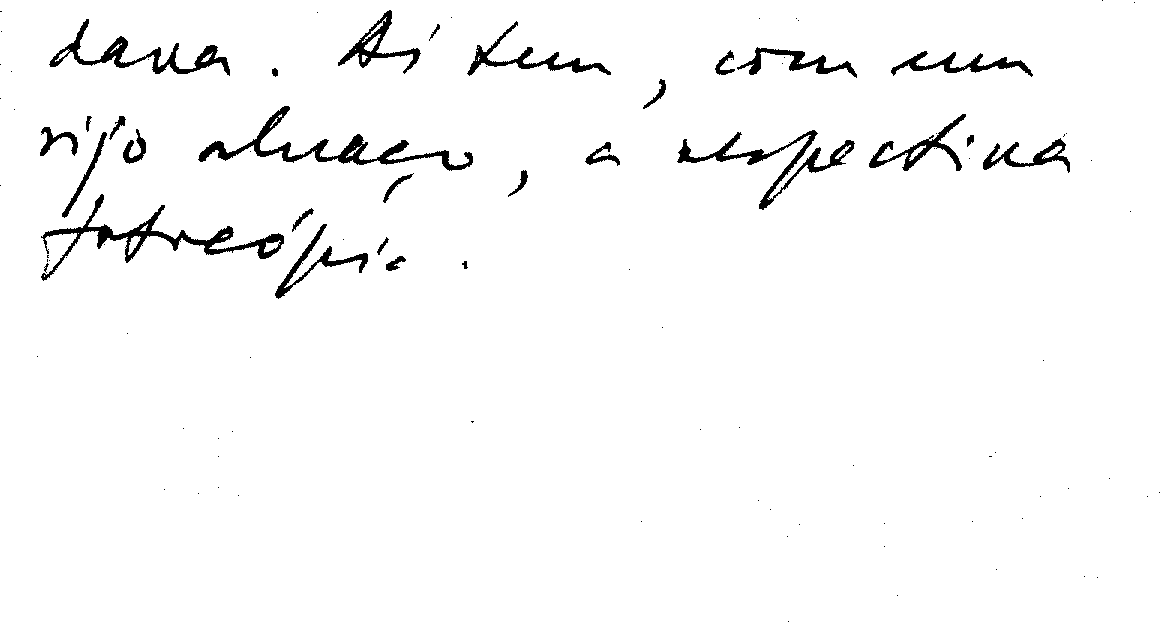 dava. Aí tem, com um
rijo abraço, a respectiva
fotocópia.